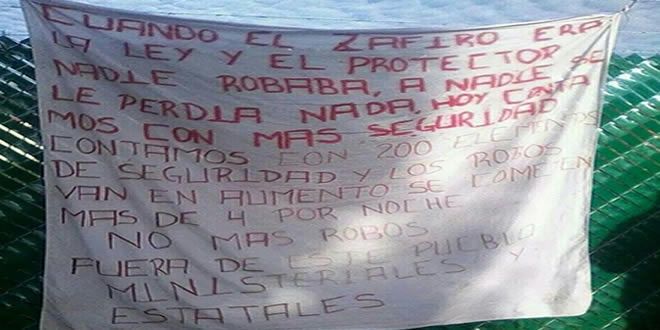 CUANDO EL ZAFIRO ERA
LA LEY Y EL PROTECTOR
NADIE ROBABA, A NADIE SE
LE PERDIA NADA, HOY CONTA
MOS CON MAS SEGURIDAD
CONTAMOS CON 200 ELEMENTOS
DE SEGURIDAD Y LOS ROBOS
VAN EN AUMENTO SE COMETEN
MAS DE 4 POR NOCHE
NO MAS ROBOS
FUERA DE ESTE PUEBLO
MINISTERIALES Y
ESTATALES